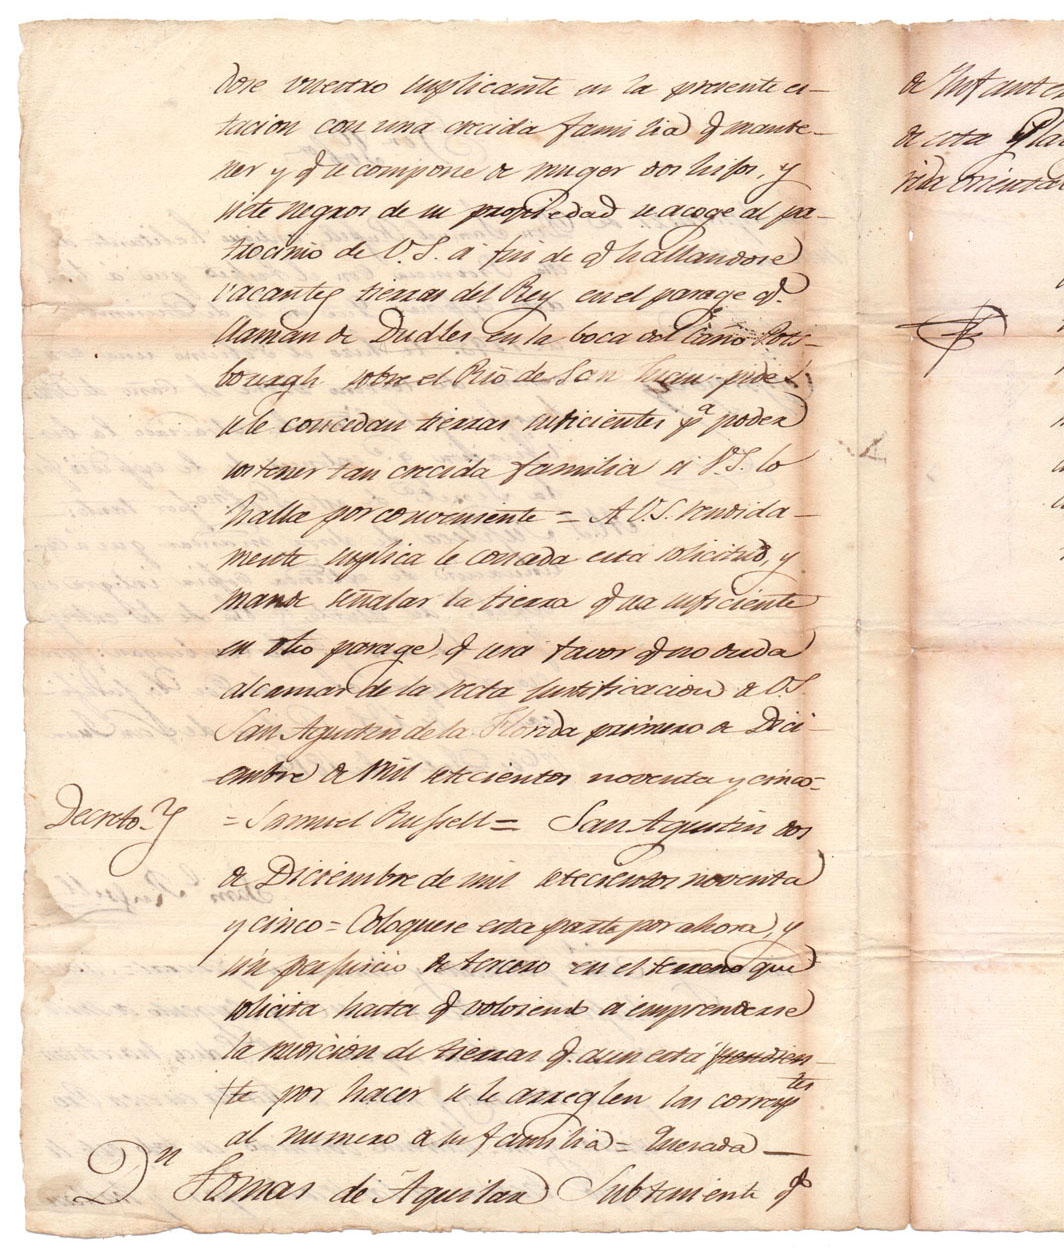 dose vuestro suplicante en la presente es-
tacion con una crecida familia q̃ mante-
ner y q̃ se compone de muger dos hijos, y
siete negros de su propriedad se acoge al pa-
trocinio de V.S. a fin de q̃ hallandose
vacantes tierras del Rey en el parage q̃.
llaman de Dudles en la boca del Caño Potts-
bourgh sobre el Rio de San Juan pide
se le concedan tierras suficientes pª poder
sostener tan crecida familia si V.S. lo
halla por conveniente = A V.S. rendida-
mente suplica le conceda esta solicitud, y
mande señalar la tierra q̃ sea suficiente
en dho parage, q̃ sera favor q̃ no duda
alcansar de la recta justificacion de V.S.
San Agustin de la Florida primero de Dici-
embre de Mil setecientos noventa y cinco=
Decreto.
= Samuel Russell = San Agustin dos
de Diciembre de mil setecientos noventa
y cinco = Coloquese esta parte por ahora, y
sin perjuicio de tercero en el terreno que
solicita hasta q̃ volviendo a emprenderse
la medicion de tierras q̃. aun esta pendien-
te por hacer se le arreglen las corresp
tes
al numero de su familia = Quesada —
Dn Tomas de Aguilar Subteniente
de Infanter
de esta Plaz
rida orienta